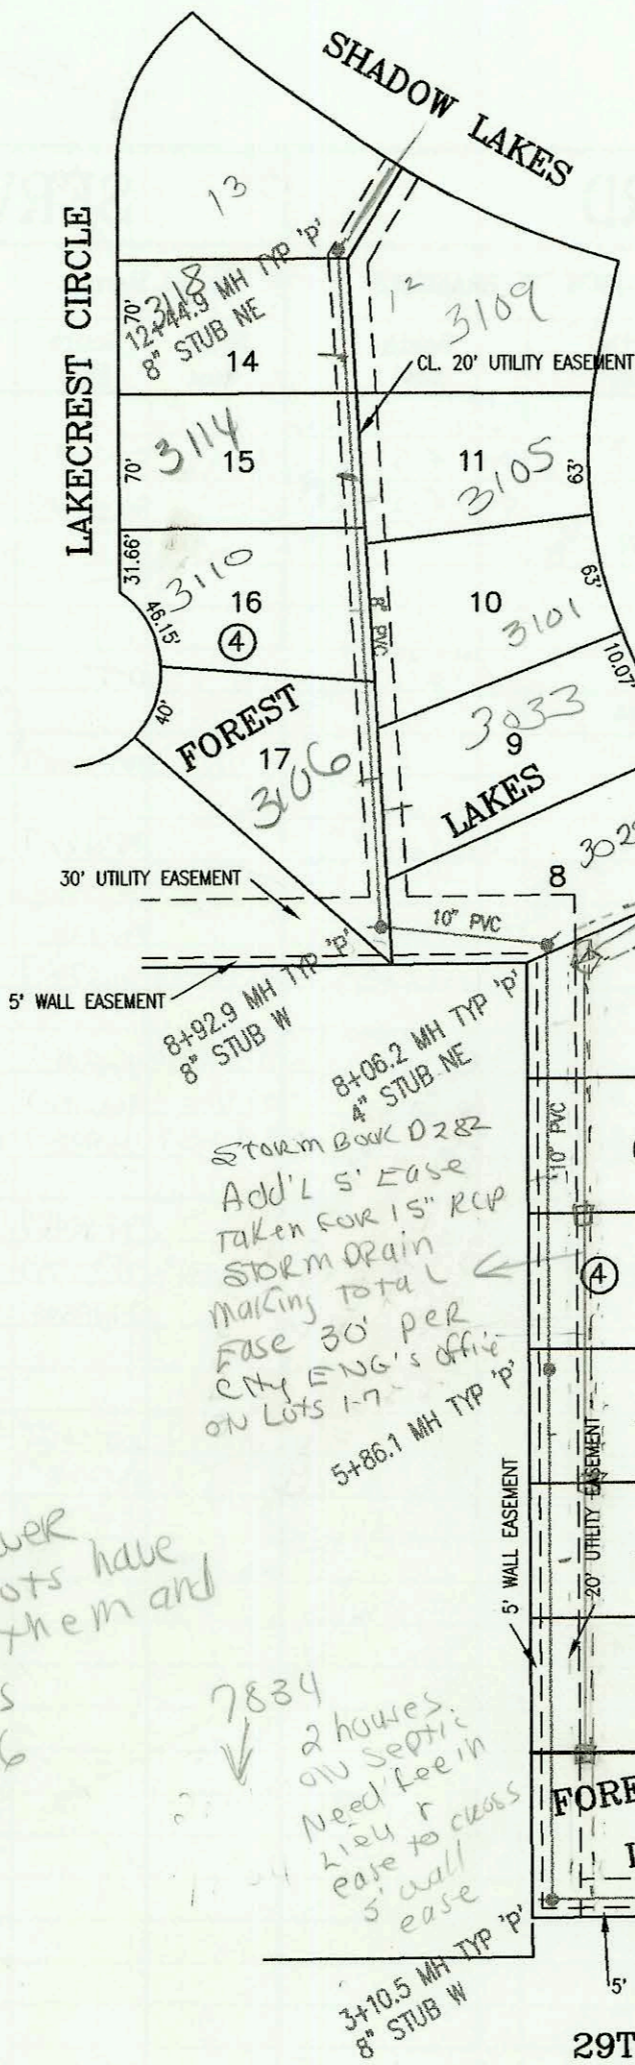 SHADOW LAKES
LAKECREST CIRCLE
13
3118
12+44.9 MH TYP 'P'
8" STUB NE
70'
14
12
3109
CL. 20' UTILITY EASEMENT
3114
15
70'
11
3105
63'
31.66'
3110
16
46.15'
4
8" PVC
10
3101
63'
10.07'
40'
FOREST
17
3106
3033
9
LAKES
30' UTILITY EASEMENT
8
302
10" PVC
5' WALL EASEMENT
8+92.9 MH TYP 'P'
8" STUB W
8+06.2 MH TYP 'P'
4" STUB NE
10" PVC
STORM BOOK D282
Add'L 5' Ease
Taken FOR 15" RCP
STORM DRain
Making TOTAL
Ease 30' per
City ENG's office
ON Lots 1-7
4
5+86.1 MH TYP 'P'
5' WALL EASEMENT
20' UTILITY EASEMENT
ots have
them and
s
6
7834
2 houses
ON Septic
Need fee in
Lieu r
ease to cross
5' wall
ease
FORE
3+10.5 MH TYP 'P'
8" STUB W
5'
29T